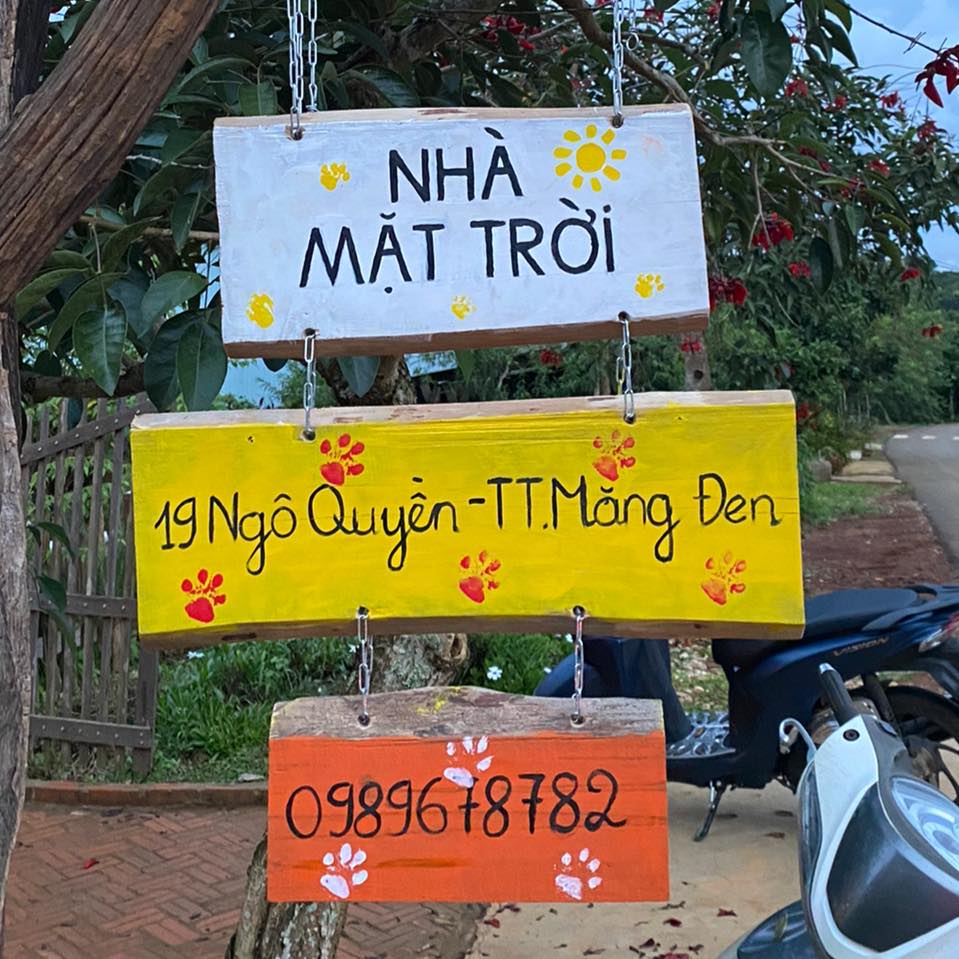 NHÀ
MẶT TRỜi
19 Ngô Quyền - TT. Măng Đen
0989678782
VISION